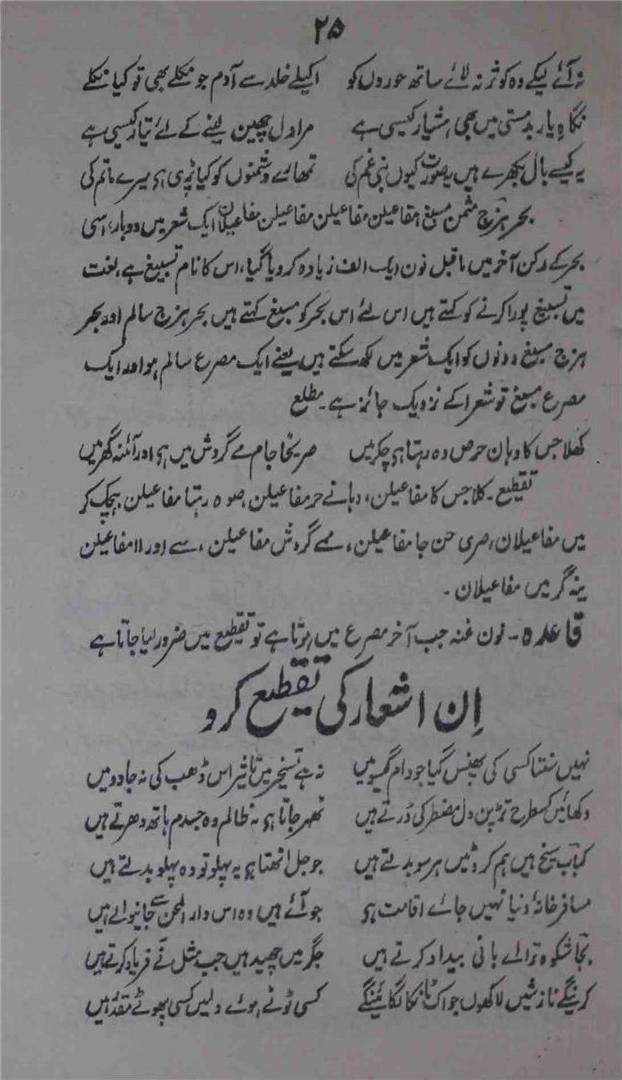 ۲۵
نہ آئے لیکے وہ کوثر نہ لائے ساتھ حوروں کو اکیلے خلد سے آدم جو نکلے بھی تو کیا نکلے
نگاہِ یار بدمستی میں بھی ہشیار کیسی ہے مرا دل چھین لینے کے لئے تیار کیسی ہے
یہ کیسے بال بکھرے ہیں یہ صورت کیوں بنی غم کی تمھارے دشمنوں کو کیا پڑی ہو میرے ماتم کی
بحر ہزج مثمن مسبغ مفاعیلن مفاعیلن مفاعیلن مفاعیلان ایک شعر میں دو بار، اسی
بحر کے رکن آخر میں ماقبل نون ایک الف زیادہ کر دیا گیا، اس کا نام تسبیغ ہے، لغت
میں تسبیغ پورا کرنے کو کہتے ہیں اس لئے اس بحر کو مسبغ کہتے ہیں بحر ہزج سالم اور بحر
ہزج مسبغ دونوں کو ایک شعر میں لکھ سکتے ہیں یعنے ایک مصرع سالم ہو اور ایک
مصرع مسبغ تو شعرا کے نزدیک جائز ہے۔ مطلع
کھلا جس کا دہان حرص وہ رہتا ہو چکر میں صریحا جام مے گردش میں ہو اور آئنہ گھر میں
تقطیع۔ کلا جس کا مفاعیلن، دہانے حر مفاعیلن، صوہ رہتا مفاعیلن ہچک کر
میں مفاعیلان، صری حن جا مفاعیلن، مے گردش مفاعیلن، سے اور اا مفاعیلن
ینہ گر میں مفاعیلان۔
قاعدہ۔ نون غنہ جب آخر مصرع میں ہوتا ہے تو تقطیع میں ضرور لیا جاتا ہے
اِن اشعار کی تقطیع کرو
نہیں سنتا کسی کی پھنس گیا جو دام گیسو میں نہ ہے تسخیر میں تاثیر اس ڈھب کی نہ جادو میں
دکھائیں کسطرح تڑپن دل مضطر کی ڈرتے ہیں ٹھہر جاتا ہو یہ ظالم وہ جسدم ہاتھ دھرتے ہیں
کباب سیخ ہیں ہم کروٹیں ہر سو بدلتے ہیں جو جل اٹھتا ہو یہ پہلو تو وہ پہلو بدلتے ہیں
مسافر خانۂ دنیا نہیں جائے اقامت ہو جو آئے ہیں وہ اس دار المحن سے جانیوالے ہیں
بجا شکوہ ترا اے بانی بیداد کرتے ہیں جگر میں چھید ہیں جب مثل نَے فریاد کرتے ہیں
کرینگے نازشیں لاکھوں جو اک ٹانکا لگا ئینگے کسی ٹوٹے ہوئے دلیں کسی پھوٹے مقدر میں